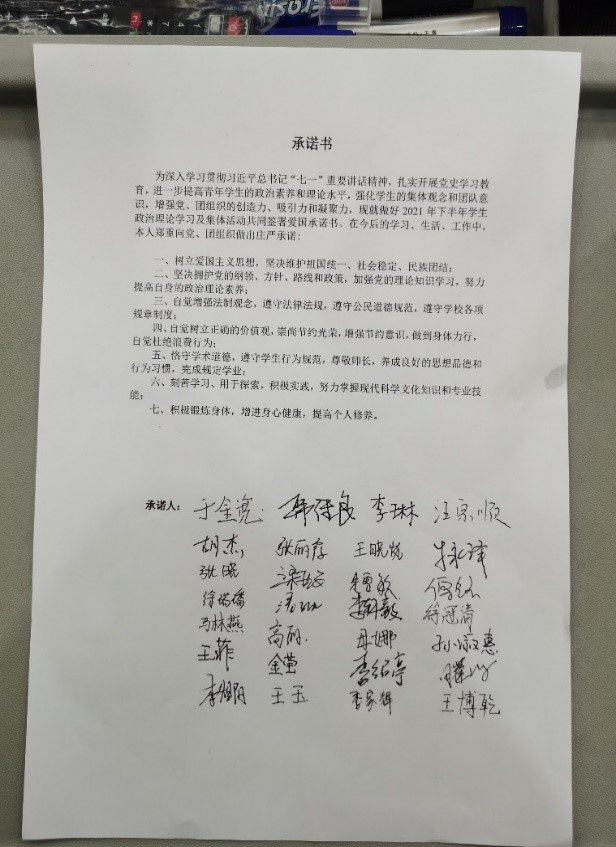 承诺书
为深入学习贯彻习近平总书记“七一”重要讲话精神，扎实开展党史学习教
育，进一步提高青年学生的政治素养和理论水平，强化学生的集体观念和团队意
识，增强党、团组织的创造力、吸引力和凝聚力，现就做好 2021 年下半年学生
政治理论学习及集体活动共同签署爱国承诺书。在今后的学习、生活、工作中，
本人郑重向党、团组织做出庄严承诺：
一、树立爱国主义思想，坚决维护祖国统一、社会稳定、民族团结；
二、坚决拥护党的纲领、方针、路线和政策，加强党的理论知识学习，努力
提高自身的政治理论素养；
三、自觉增强法制观念，遵守法律法规，遵守公民道德规范，遵守学校各项
规章制度；
四、自觉树立正确的价值观，崇尚节约光荣，增强节约意识，做到身体力行，
自觉杜绝浪费行为；
五、恪守学术道德，遵守学生行为规范，尊敬师长，养成良好的思想品德和
行为习惯，完成规定学业；
六、刻苦学习、用于探索，积极实践，努力掌握现代科学文化知识和专业技
能；
七、积极锻炼身体，增进身心健康，提高个人修养。
承诺人： 于金亮 韩保良 李琳 汪宗顺
胡杰 张丽存 王晓悦
张晓
徐冠清
马林燕 高丽 母娜 孙淑惠
王菲 金莹 李绍亭
王玉 李家辉 王博乾